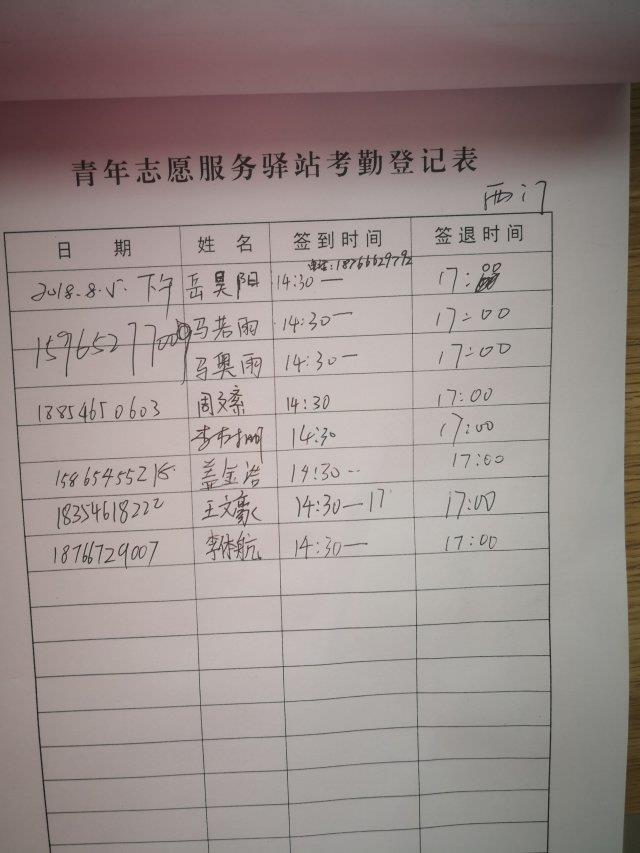 青年志愿服务驿站考勤登记表
西门
日 期 姓 名 签到时间 签退时间
电话:18766629792
2018.8.5. 下午 岳昊阳 14:30— 17:
15965277009 马若雨 14:30— 17:00
马奥雨 14:30— 17:00
18854650603 周文 14:30 17:00
李 14:30 17:00
盖金浩 14:30-- 17:00
18354618222 王文豪 14:30—17 17:00
18766729007 李休航 14:30— 17:00